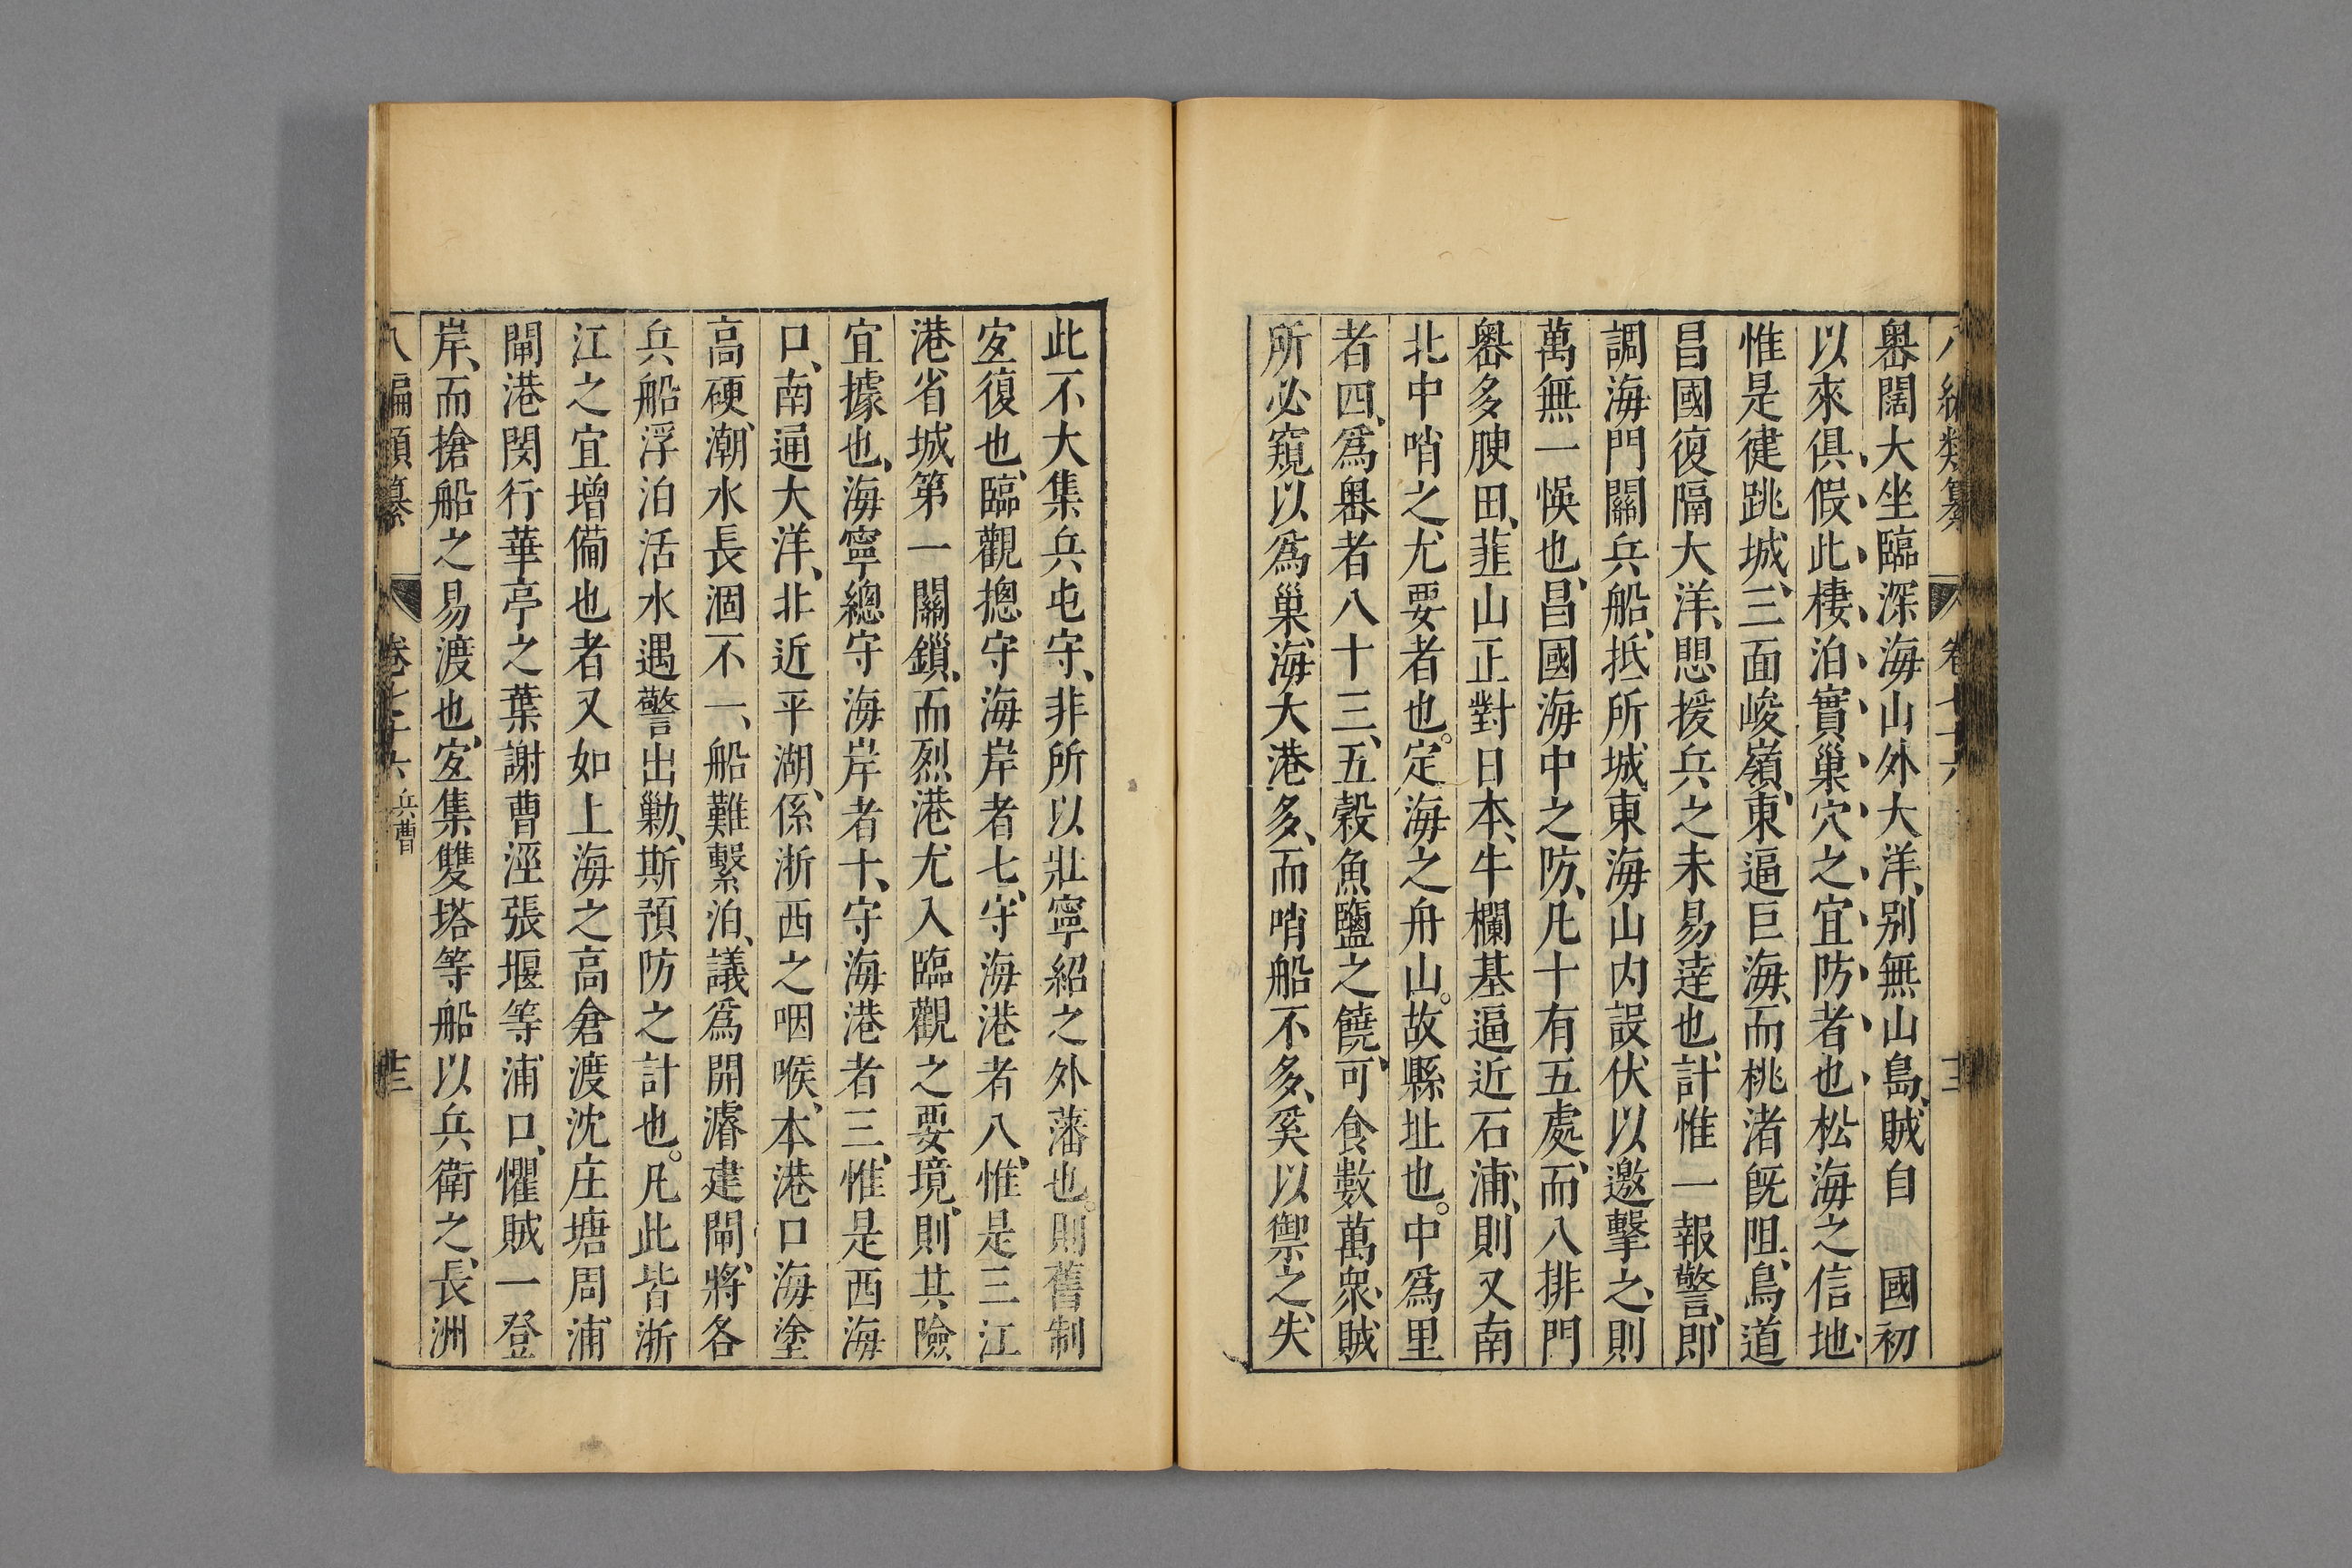 八編類纂 卷七十六
嶴闊大坐臨深海山外大洋、別無山島、賊自 國初
以來俱假此棲泊實巢穴之宜防者也松海之信地、
惟是健跳城、三面峻嶺、東逼巨海、而桃渚旣阻、鳥道
昌國復隔大洋、愳援兵之未易逹也、計惟一報警、即
調海門關兵船、抵所城東海山内設伏以邀擊之、則
萬無一悞也、昌國海中之防、凡十有五處、而八排門
嶴多腴田、韮山正對日本、牛欄基逼近石浦、則又南
北中哨之尤要者也。定海之舟山。故縣址也。中爲里
者四、爲嶴者八十三、五穀魚鹽之饒、可食數萬衆、賊
所必窺以爲巢、海大港多、而哨船不多、奚以禦之、失
此不大集兵屯守、非所以壯寧紹之外藩也。則舊制
宐復也、臨觀摠守海岸者七、守海港者八、惟是三江
港省城第一關鎖、而烈港尤入臨觀之要境、則其險
宜據也、海寧總守海岸者十、守海港者三、惟是西海
口、南通大洋、北近平湖、係浙西之咽喉、本港口海塗
高硬、潮水長涸不一、船難繫泊、議爲開濬建閘、將各
兵船浮泊活水遇警出勦、斯預防之計也。凡此皆浙
江之宜增備也者又如上海之高倉渡沈庄塘周浦
閘港閔行華亭之葉謝曹涇張堰等浦口、懼賊一登
岸、而搶船之易渡也、宐集雙塔等船以兵衛之、長洲
八編類纂 卷七十六 兵曹 十三